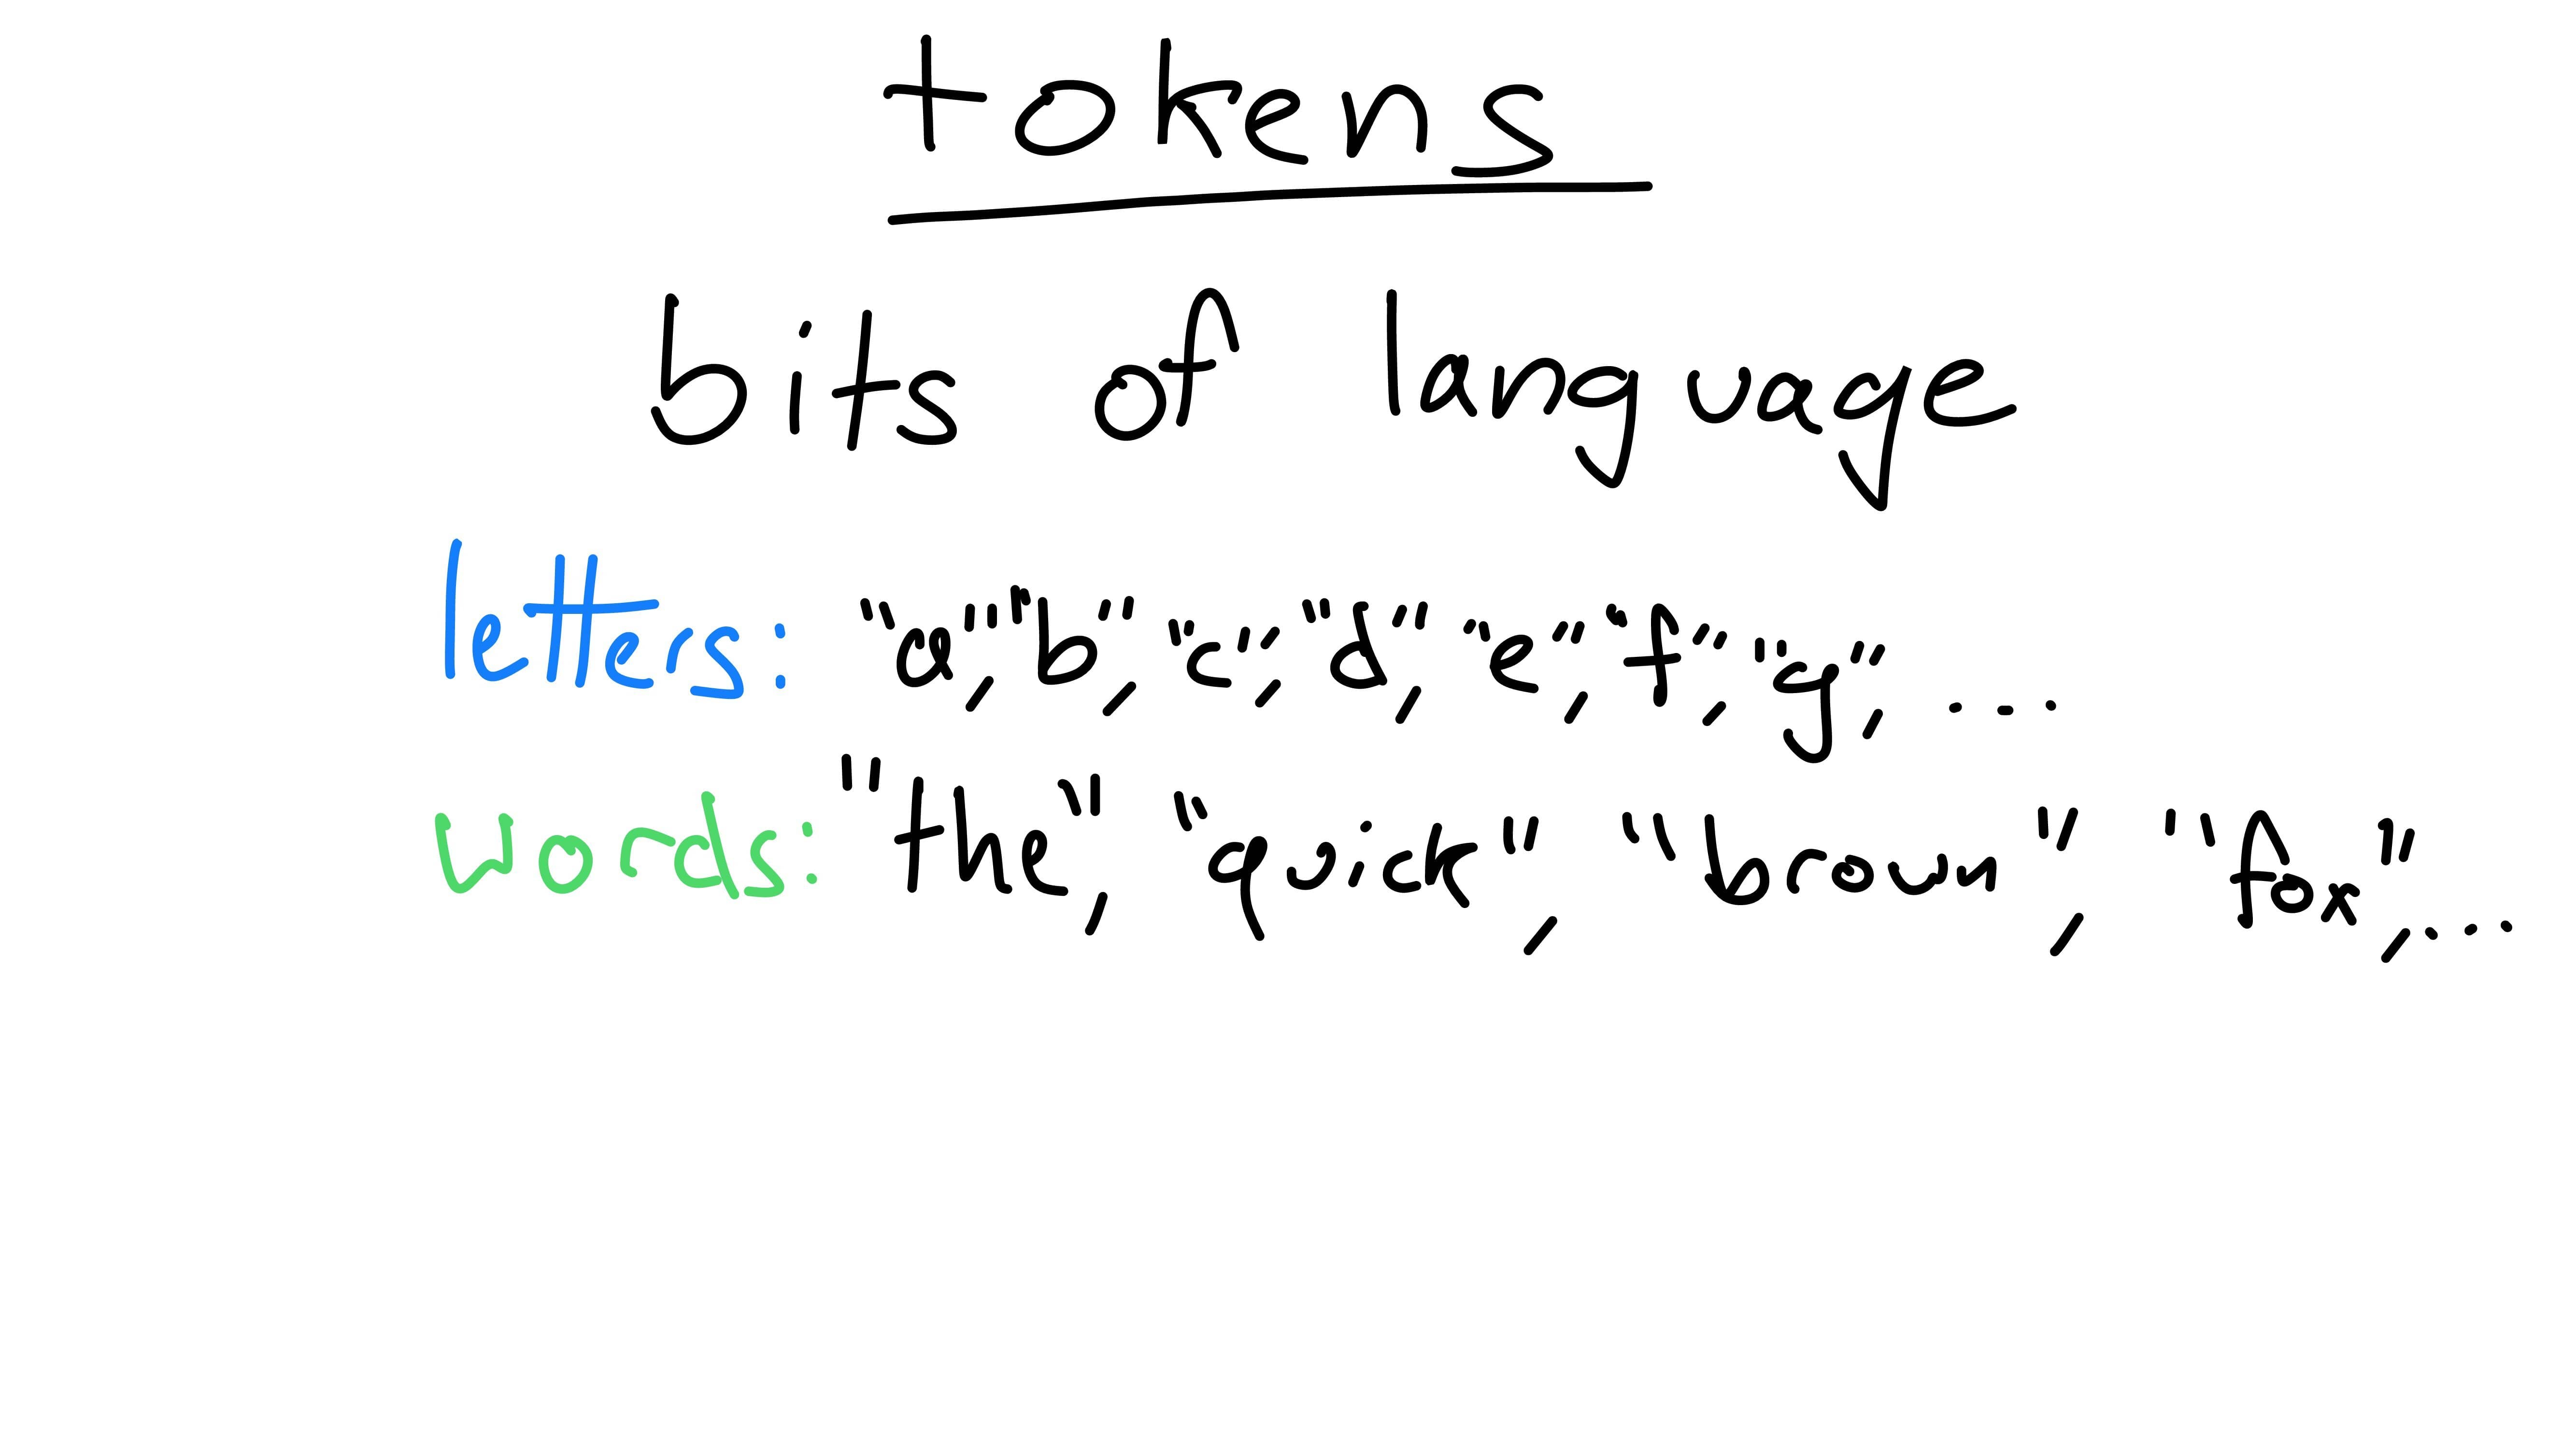 tokens
bits of language
letters: "a", "b", "c", "d", "e", "f", "g", ...
words: "the", "quick", "brown", "fox", ...